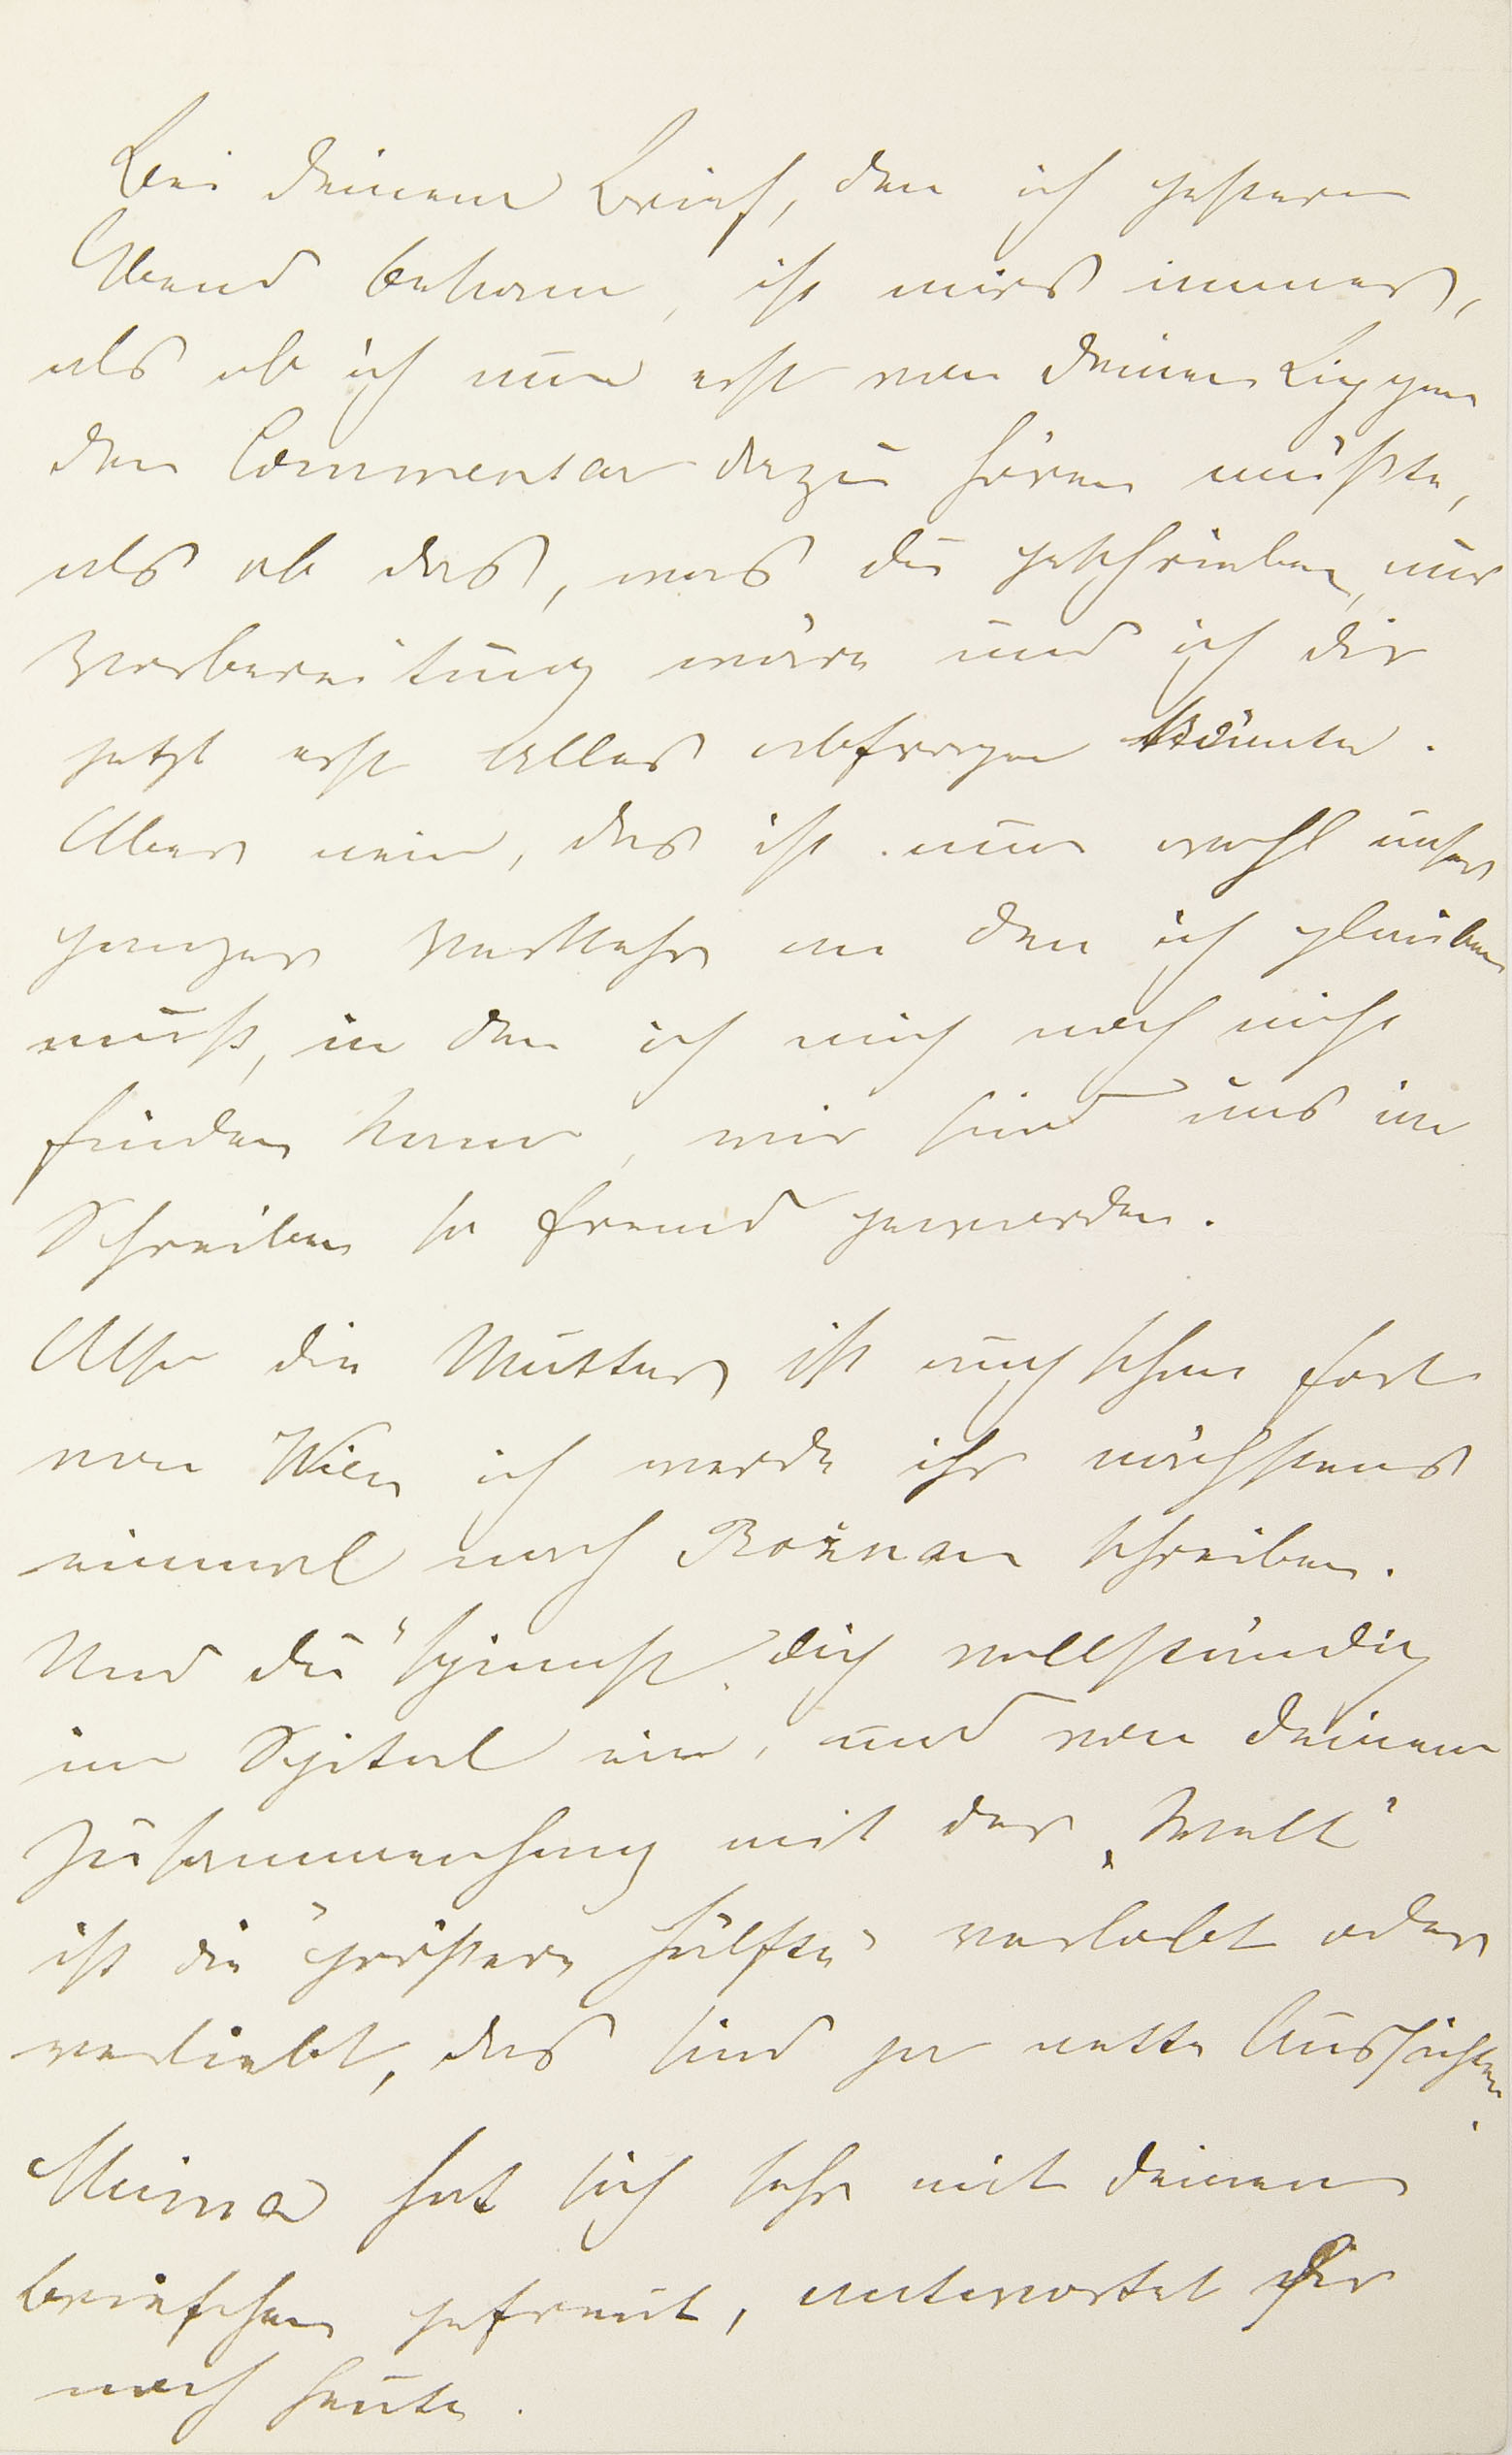 Bei Deinem Brief, den ich gestern
Abend bekam, ist mirs immer,
als ob ich nun erst von Deinen Lippen
den Commentar dazu hören müßte,
als ob das, was Du geschrieben, nur
Vorbereitung wäre und ich Dir
jetzt erst Alles abfragen könnte.
Aber nein, das ist nun wohl unser
ganzer Verkehr an den ich glauben
muß, in den ich mich noch nicht
finden kann, wir sind uns im
Schreiben so fremd geworden.
Also die Mutter ist auch schon fort
von Wien ich werde ihr nächstens
einmal nach Rožnau schreiben.
Und Du "spinnst" Dich vollständig
im Spital ein, und von Deinem
Zusammenhang mit der „Welt"
ist die "größere Hälfte" verlobt oder
verliebt, das sind ja nette Aussichten.
Minna hat sich sehr mit Deinem
Briefchen gefreut, antwortet Dir
noch heute.